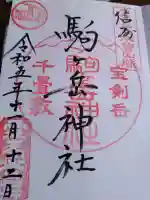 信州
宝剣岳
駒ヶ岳神社
千畳敷
令和五年十一月十二日